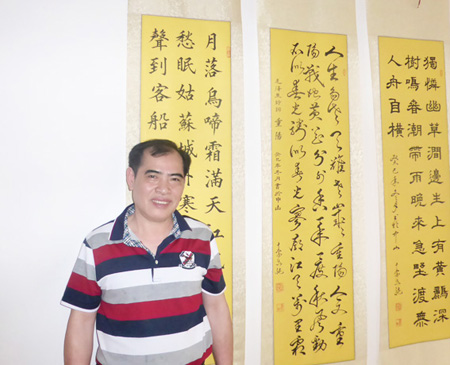 月落烏啼霜滿天江
愁眠姑蘇城外寒
聲到客船
人生易老天難老歲歲重陽今又重
陽戰地黃花分外香一年一度秋風勁
不似春光勝似春光寥廓江天萬里霜
重陽
獨憐幽草澗邊生上有黃鸝深
樹鳴春潮帶雨晚來急野渡無
人舟自橫